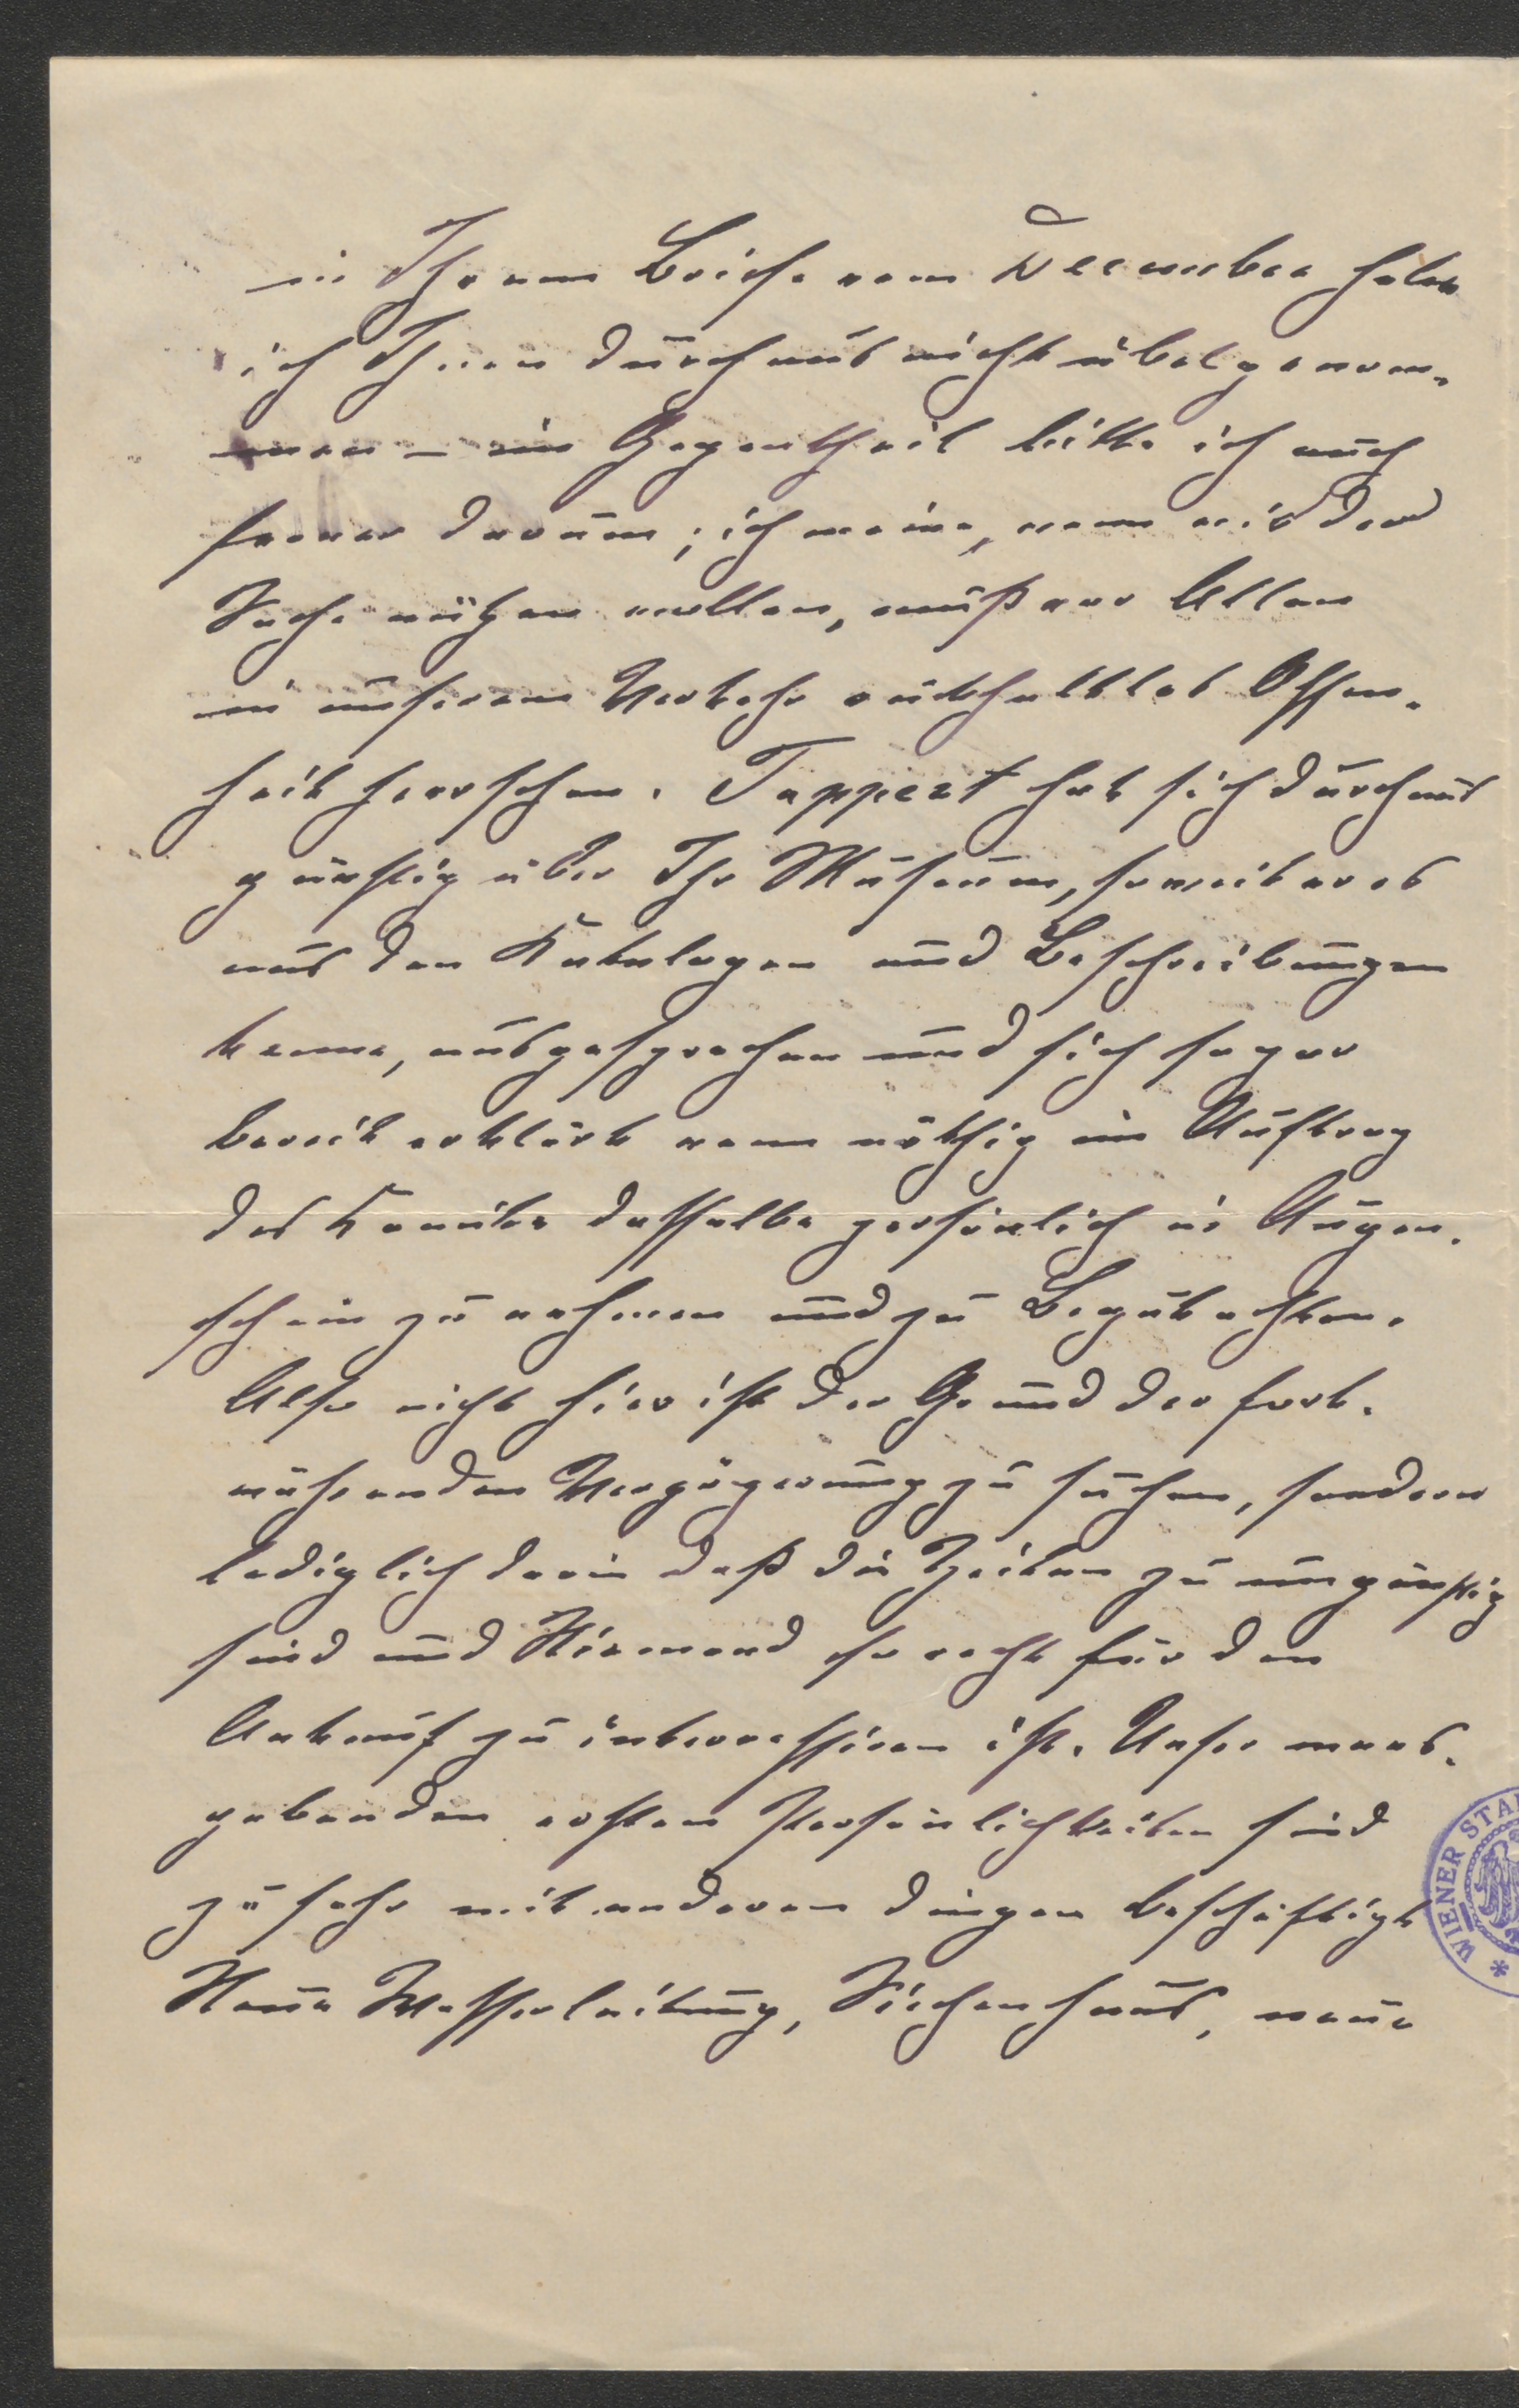 in Ihrem Briefe vom December habe
ich Ihnen durchaus nicht übelgenom-
men – im Gegentheil bitte ich auch
ferner darum; ich meine, wenn wir der
Sache nützen wollen, muß vor Allem
in unserem Verkehr rückhaltlos Offen-
heit herrschen. Tappert hat sich durchaus
günstig über Ihr Museum, soweit er es
aus den Katalogen und Beschreibungen
kenne, ausgesprochen und sich sogar
bereit erklärt wenn nöthig im Auftrag
des Komités dasselbe persönlich in Augen-
schein zu nehmen und zu Begutachten.
Also nicht hier ist der Grund der fort-
währenden Verzögerung zu suchen, sondern
lediglich darin daß die Zeiten zu ungünstig
sind und Niemand so recht für den
Ankauf zu interessiren ist. Unser maas-
gebenden ersten Persönlichkeiten sind
zu sehr mit anderen Dingen beschäftigt
Neue Wasserleitung, Siechenhaus, neue
WIENER STA